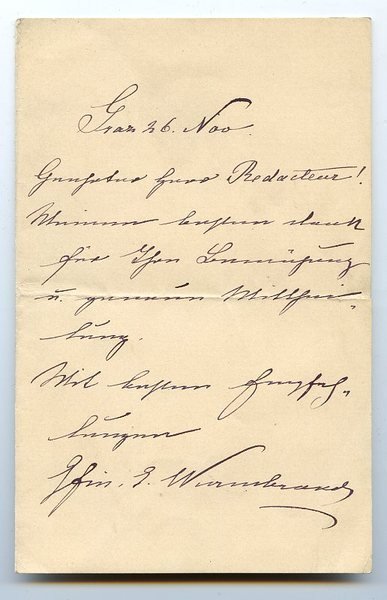 Graz 26. Nov.
Geehrter Herr Redacteur!
Meinen besten Dank
für Ihre Bemühung
u. genaue Mitthei-
lung.
Mit besten Empfeh-
lungen
Gfin. E. Wurmbrand